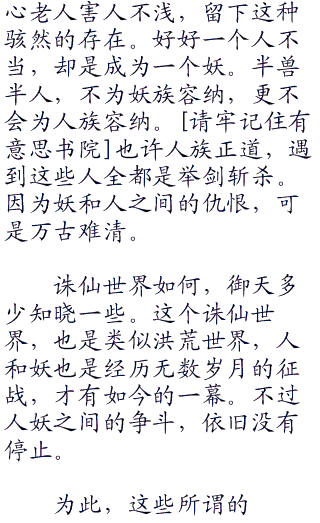 心老人害人不浅，留下这种
骇然的存在。好好一个人不
当，却是成为一个妖。半兽
半人，不为妖族容纳，更不
会为人族容纳。[请牢记住有
意思书院]也许人族正道，遇
到这些人全都是举剑斩杀。
因为妖和人之间的仇恨，可
是万古难清。
诛仙世界如何，御天多
少知晓一些。这个诛仙世
界，也是类似洪荒世界，人
和妖也是经历无数岁月的征
战，才有如今的一幕。不过
人妖之间的争斗，依旧没有
停止。
为此，这些所谓的